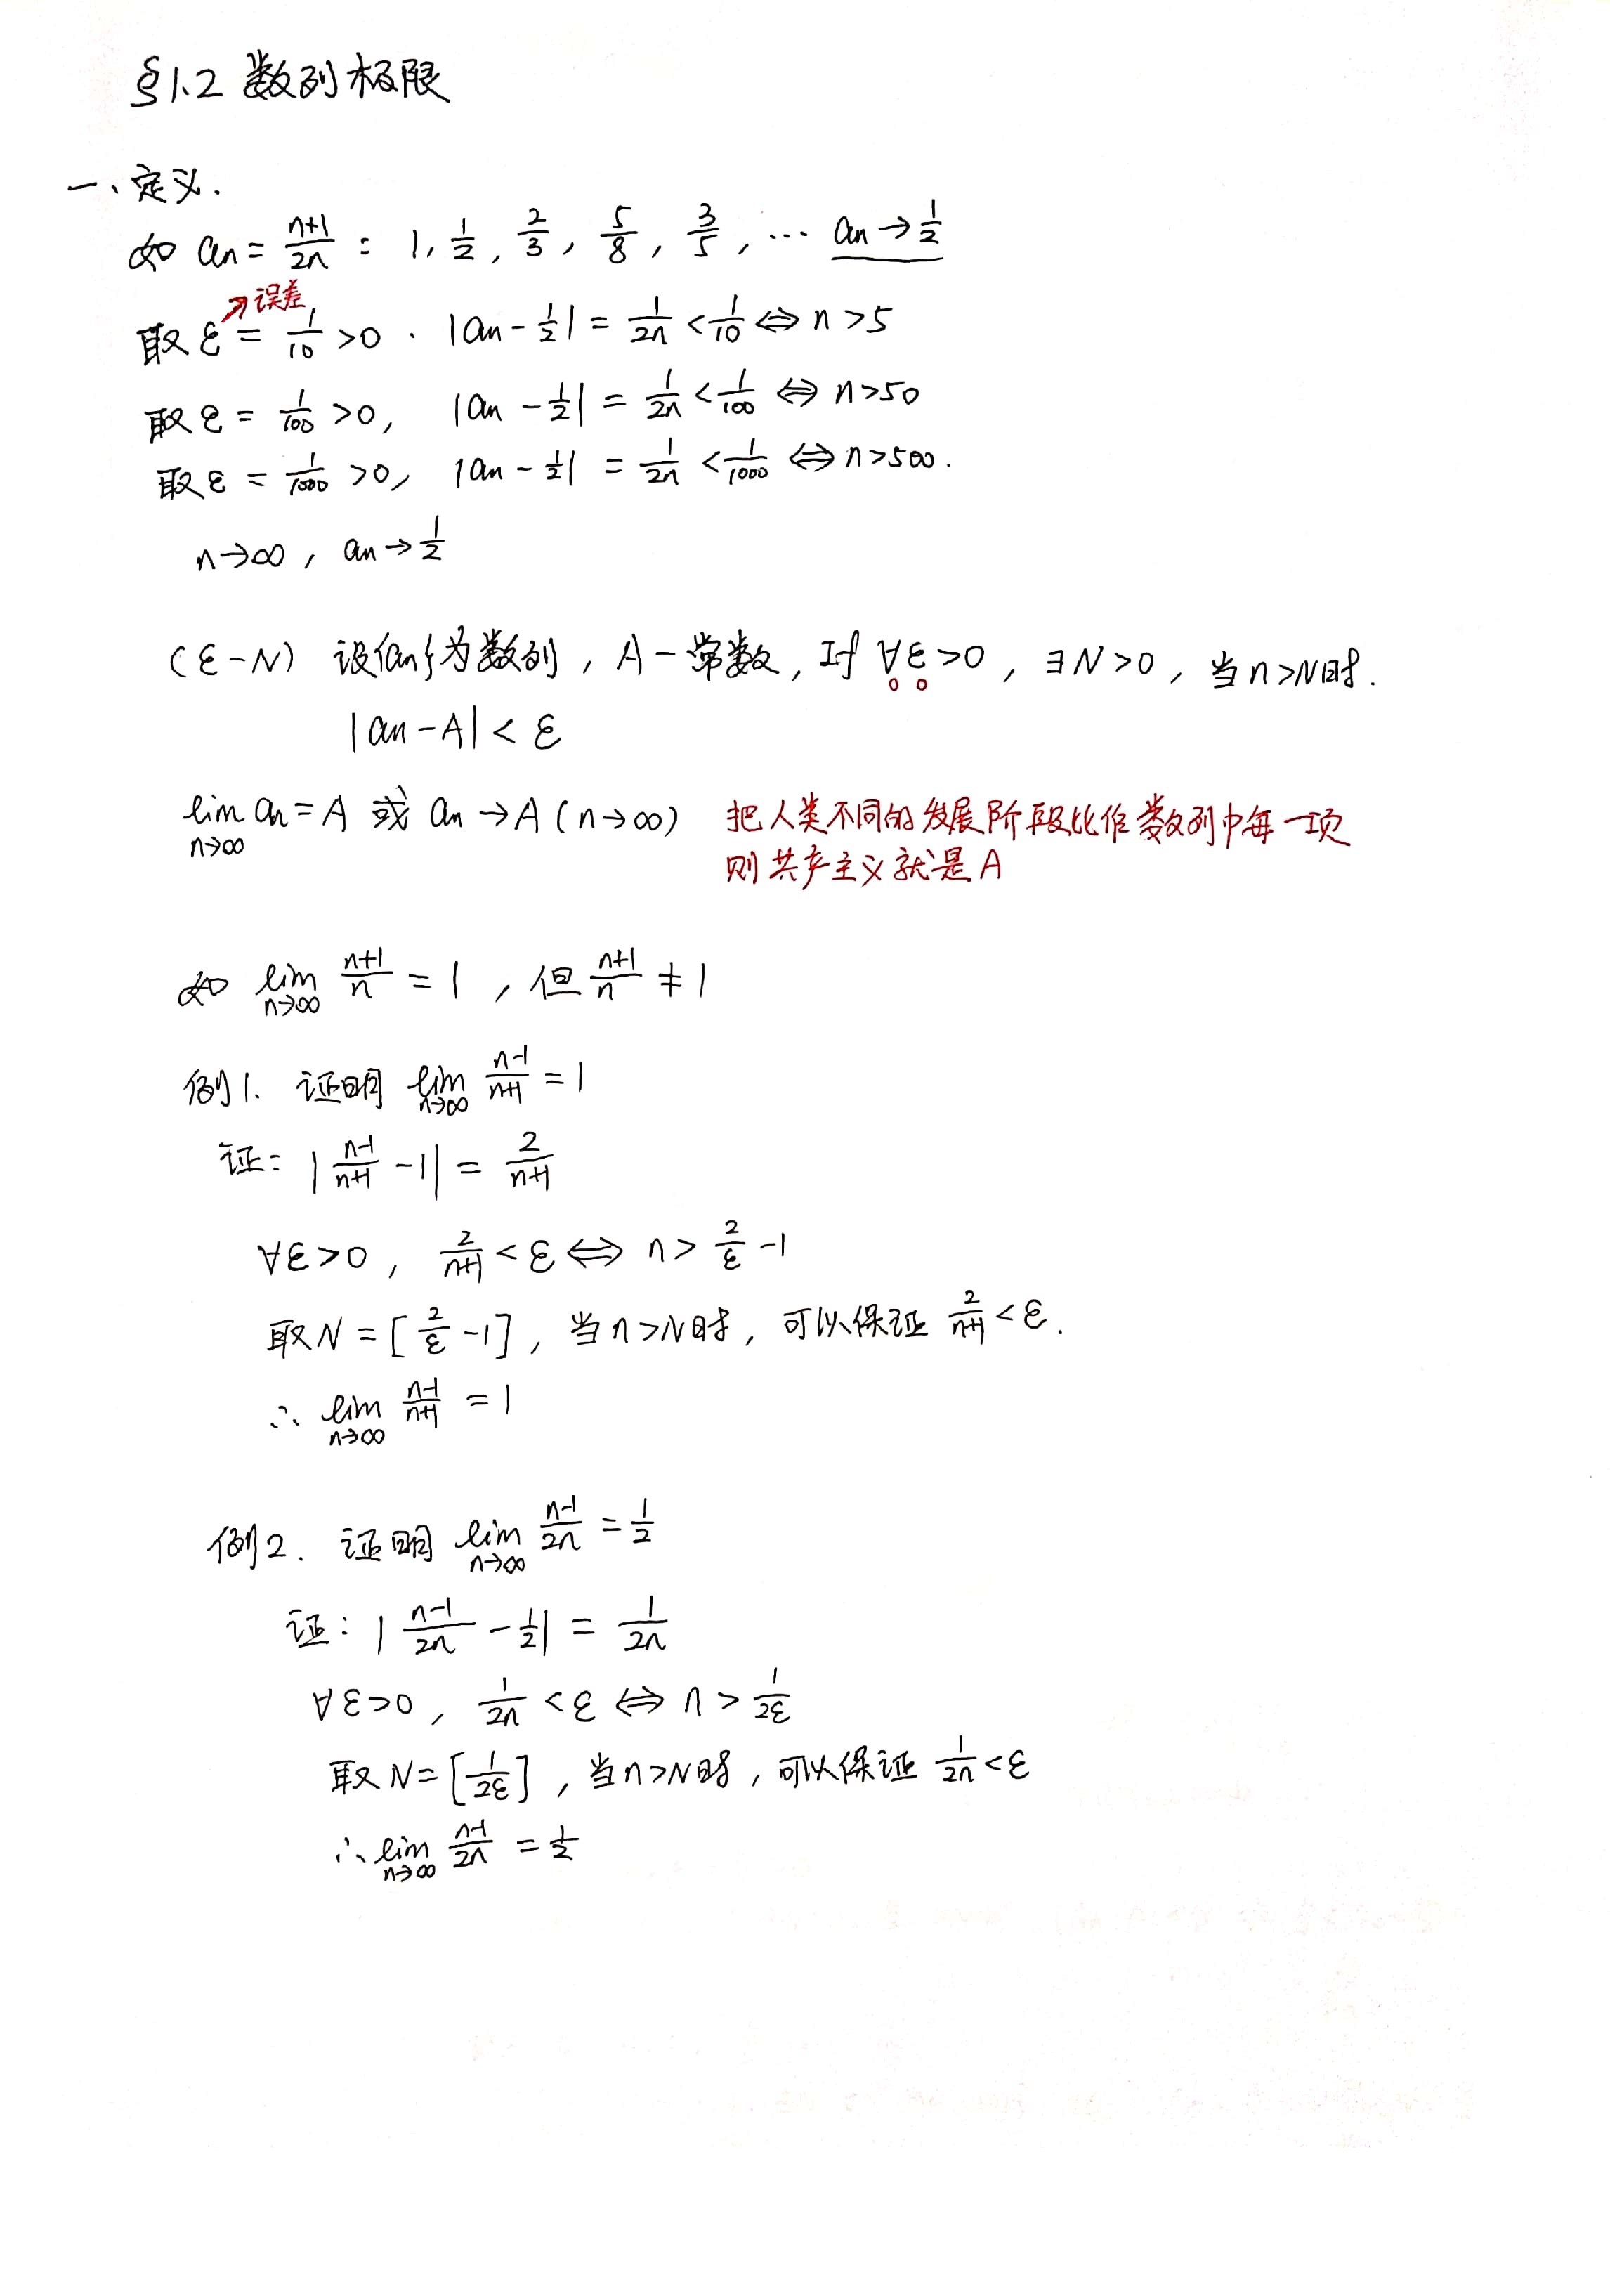 §1.2 数列极限
一、定义.
如 an = (n+1)/(2n) : 1, 1/2, 2/3, 5/8, 3/5, … an→1/2
↗误差
取 ε = 1/10 >0 . |an - 1/2| = 1/(2n) < 1/10 ⇔ n >5
取 ε = 1/100 >0, |an - 1/2| = 1/(2n) < 1/100 ⇔ n >50
取 ε = 1/1000 >0, |an - 1/2| = 1/(2n) < 1/1000 ⇔ n>500.
n→∞, an→1/2
(ε-N) 设{an}为数列, A-常数, If ∀ε>0, ∃N>0, 当n>N时.
|an-A| < ε
lim n→∞ an = A 或 an→A (n→∞)
把人类不同的发展阶段比作数列中每一项
则共产主义就是A
如 lim n→∞ (n+1)/n = 1, 但 (n+1)/n ≠ 1
例1. 证明 lim n→∞ (n-1)/(n+1) = 1
证: |(n-1)/(n+1) - 1| = 2/(n+1)
∀ε>0, 2/(n+1) < ε ⇔ n > 2/ε - 1
取N = [2/ε - 1], 当n>N时, 可以保证 2/(n+1) < ε.
∴ lim n→∞ (n-1)/(n+1) = 1
例2. 证明 lim n→∞ (n-1)/(2n) = 1/2
证: |(n-1)/(2n) - 1/2| = 1/(2n)
∀ε>0, 1/(2n) < ε ⇔ n > 1/(2ε)
取N = [1/(2ε)], 当n>N时, 可以保证 1/(2n) < ε
∴ lim n→∞ (n-1)/(2n) = 1/2